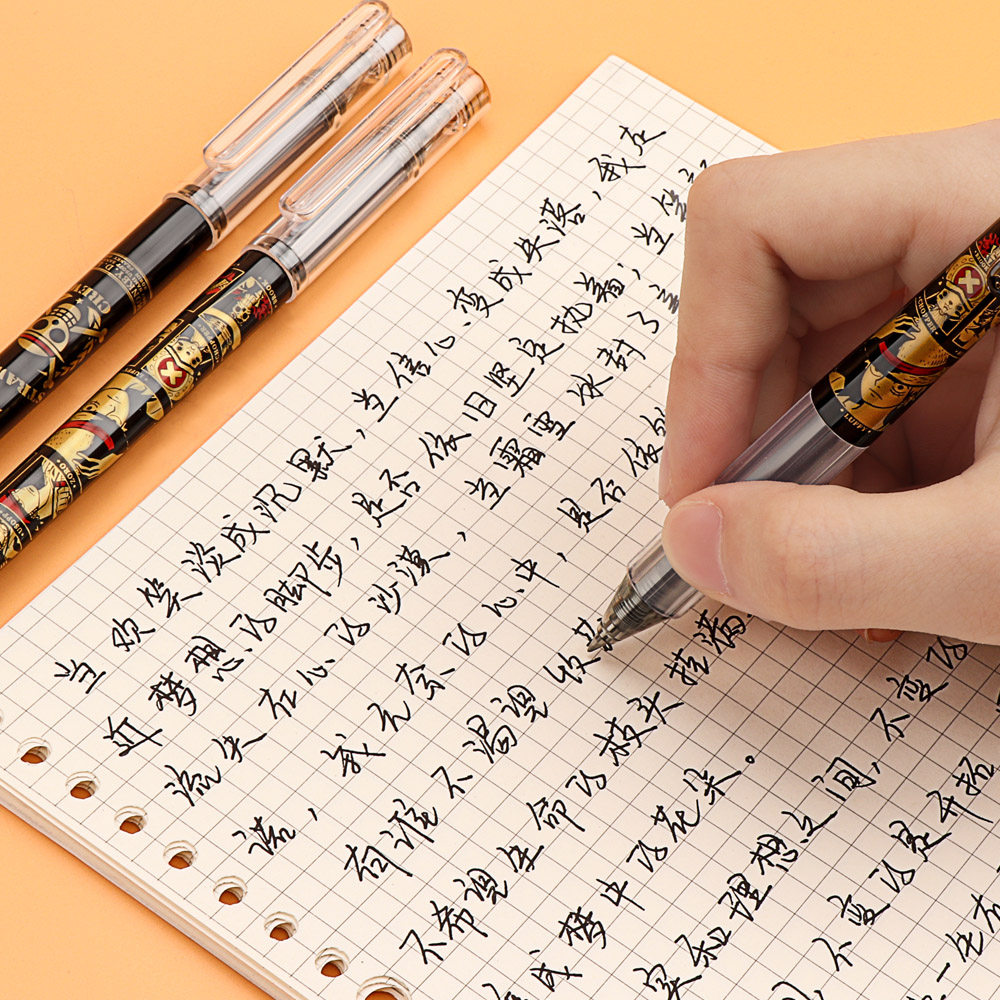 当欢笑淡成沉默，当信心变成失落，我走
近梦想的脚步，是否依旧坚定执着；当笑
流失在心的沙漠，当霜雪冰封了
诺，我无奈的心中，是否依
有谁不渴望收
不希望生命的枝头挂满
梦中的花朵。
实和理想之间，不变的
不变的是开拓
MONKEY D.
CHOPPER
LUFFY
ZORO
CHOPPER
LUFFY